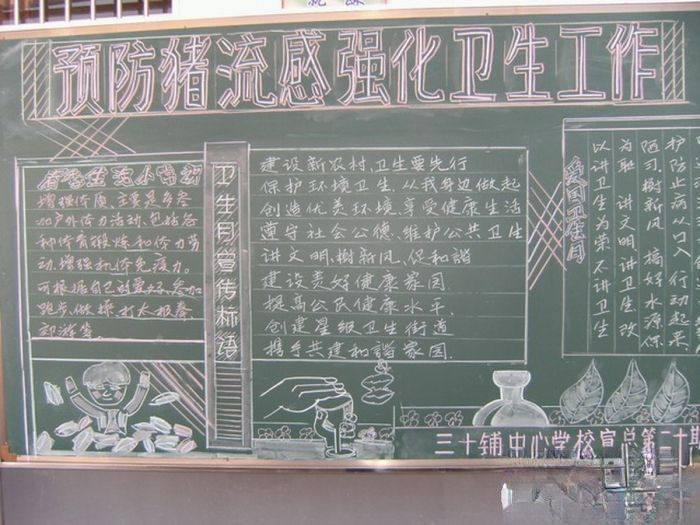 预防猪流感强化卫生工作
春季生活小常识
增强体质,主要是多参
加户外体力活动,包括各
种体育锻炼和体力劳
动,增强机体免疫力。
可根据自己的爱好,参加
跑步、做操、打太极拳
郊游等.
卫生月宣传标语
建设新农村,卫生要先行
保护环境卫生,从我身边做起
创造优美环境,享受健康生活
遵守社会公德、维护公共卫生
讲文明,树新风,保和谐
建设美好健康家园.
提高公民健康水平.
创建星级卫生街道
携手共建和谐家园.
爱国卫生月
以讲卫生为荣不讲卫生
为耻 讲文明讲卫生改
陋习,树新风 搞好水源保
护防止病从口入 行动起来,
三十铺中心学校宣总第二十期